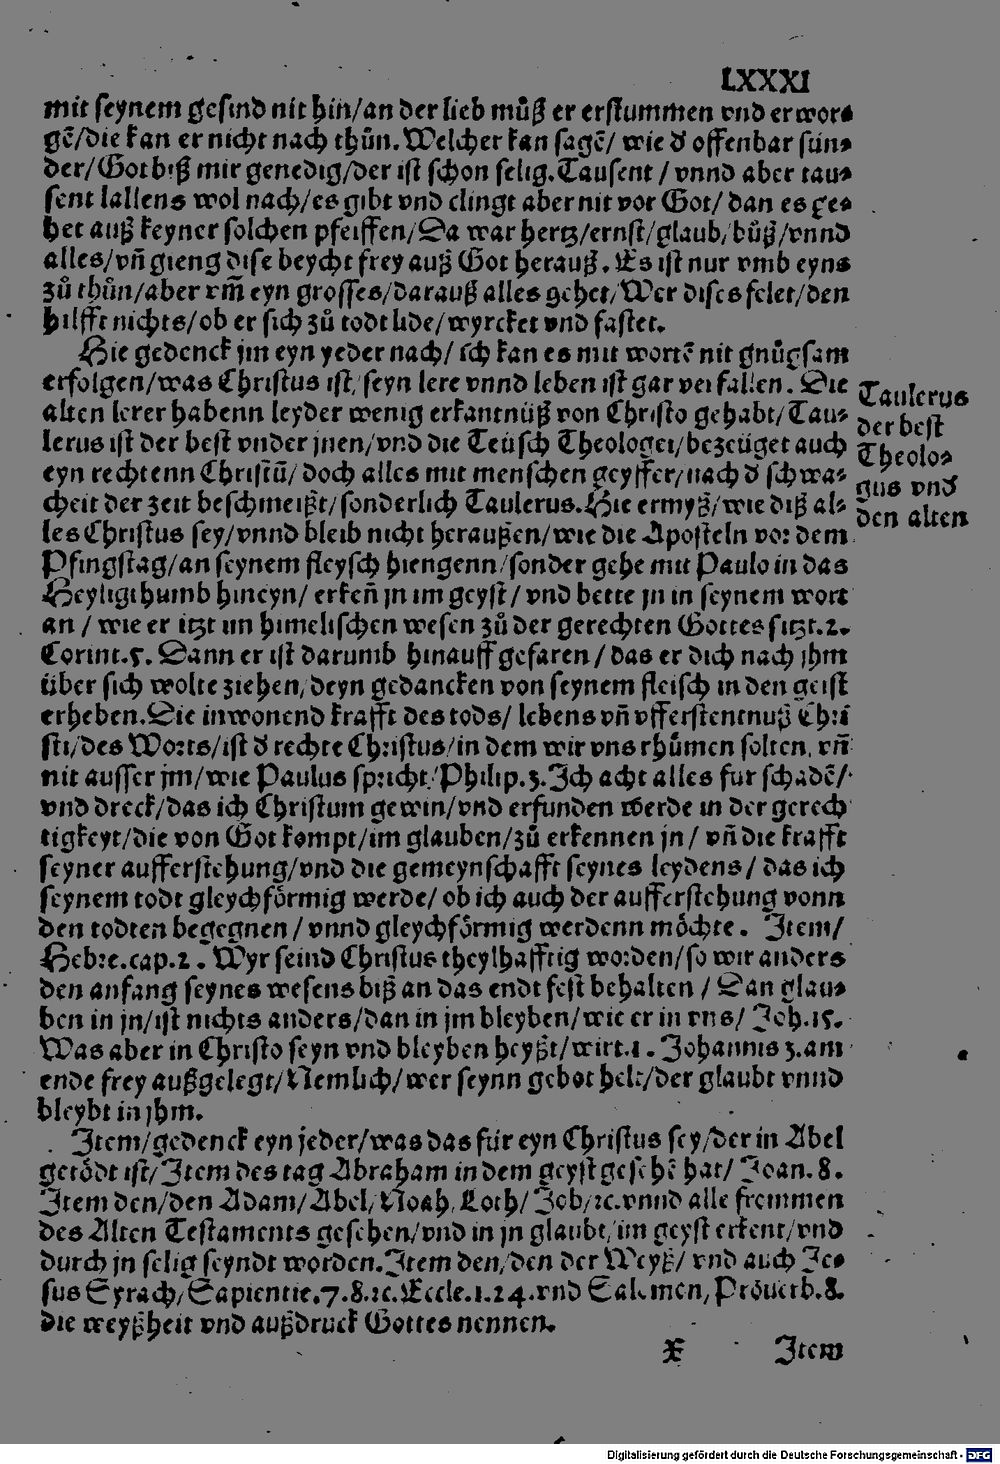 LXXXI
mit seynem gesind nit hin/an der lieb muͦß er erstummen vnd erwor⸗
gẽ/die kan er nicht nach thuͦn. Welcher kan sagẽ/ wie d' offenbar sün⸗
der/Got biß mir genedig/der ist schon selig. Tausent / vnnd aber tau⸗
sent lallens wol nach/es gibt vnd clingt aber nit vor Got/ dan es ge⸗
het auß keyner solchen pfeiffen/Da war hertz/ernst/glaub/buͦß/vnnd
alles/vñ gieng dise beycht frey auß Got herauß. Es ist nur vmb eyns
zuͦ thuͦn/aber vm̃ eyn grosses/darauß alles gehet/Wer dises felet/den
hilfft nichts/ob er sich zuͦ todt lide/wyrcket vnd fastet.
Hie gedenck jm eyn yeder nach/ ich kan es mit wortẽ nit gnuͦgsam
erfolgen/was Christus ist/ seyn lere vnnd leben ist gar verfallen. Die
alten lerer habenn leyder wenig erkantnüß von Christo gehabt/Tau⸗
lerus ist der best vnder jnen/vnd die Teüsch Theologei/bezeüget auch
eyn rechtenn Christũ/ doch alles mit menschen geyffer/nach d' schwa⸗
cheit der zeit beschmeißt/sonderlich Taulerus. Hie ermyß/wie diß al⸗
les Christus sey/vnnd bleib nicht heraußen/wie die Aposteln vor dem
Pfingstag/an seynem fleysch hiengenn/sonder gehe mit Paulo in das
Heyligthumb hineyn/ erkeñ jn im geyst/ vnd bette jn in seynem wort
an / wie er itzt im himelischen wesen zuͦ der gerechten Gottes sitzt.2.
Corint.5. Dann er ist darumb hinauff gefaren / das er dich nach jhm
über sich wolte ziehen/deyn gedancken von seynem fleisch in den geist
erheben. Die inwonend krafft des tods/ lebens vñ vfferstentnuß Chri
sti/des Worts/ist d' rechte Christus/in dem wir vns rhuͦmen solten, vñ
nit ausser jm/wie Paulus spricht/Philip.3. Ich acht alles fur schadẽ/
vnd dreck/das ich Christum gewin/vnd erfunden werde in der gerech
tigkeyt/die von Got kompt/im glauben/zuͦ erkennen jn / vñ die krafft
seyner aufferstehung/vnd die gemeynschafft seynes leydens / das ich
seynem todt gleychförmig werde/ ob ich auch der aufferstehung vonn
den todten begegnen / vnnd gleychförmig werdenn möchte. Item/
Hebre.cap.2. Wyr seind Christus theylhafftig worden/so wir anders
den anfang seynes wesens biß an das endt fest behalten / Dan glau⸗
ben in jn/ist nichts anders/dan in jm bleyben/wie er in vns/ Joh.15.
Was aber in Christo seyn vnd bleyben heyßt/wirt.1. Johannis 3.am
ende frey außgelegt/Nemlich/wer seynn gebot helt/der glaubt vnnd
bleybt in jhm.
Item/gedenck eyn jeder/was das für eyn Christus sey/der in Abel
getödt ist/Item des tag Abraham in dem geyst gesehẽ hat/ Joan.8.
Item den/den Adam/Abel/Noah, Loth/ Job/ꝛc.vnnd alle frommen
des Alten Testaments gesehen/vnd in jn glaubt/im geyst erkent/vnd
durch jn selig seyndt worden. Item den/den der Weyß/ vnd auch Je⸗
sus Syrach/Sapientie.7.8.ꝛc.Eccle.1.24.vnd Salomon, Prouerb.8.
die weyßheit vnd außdruck Gottes nennen.
X Item
Taulerus
der best
Theolo⸗
gus vnd'
den alten
Digitalisierung gefördert durch die Deutsche Forschungsgemeinschaft - DFG